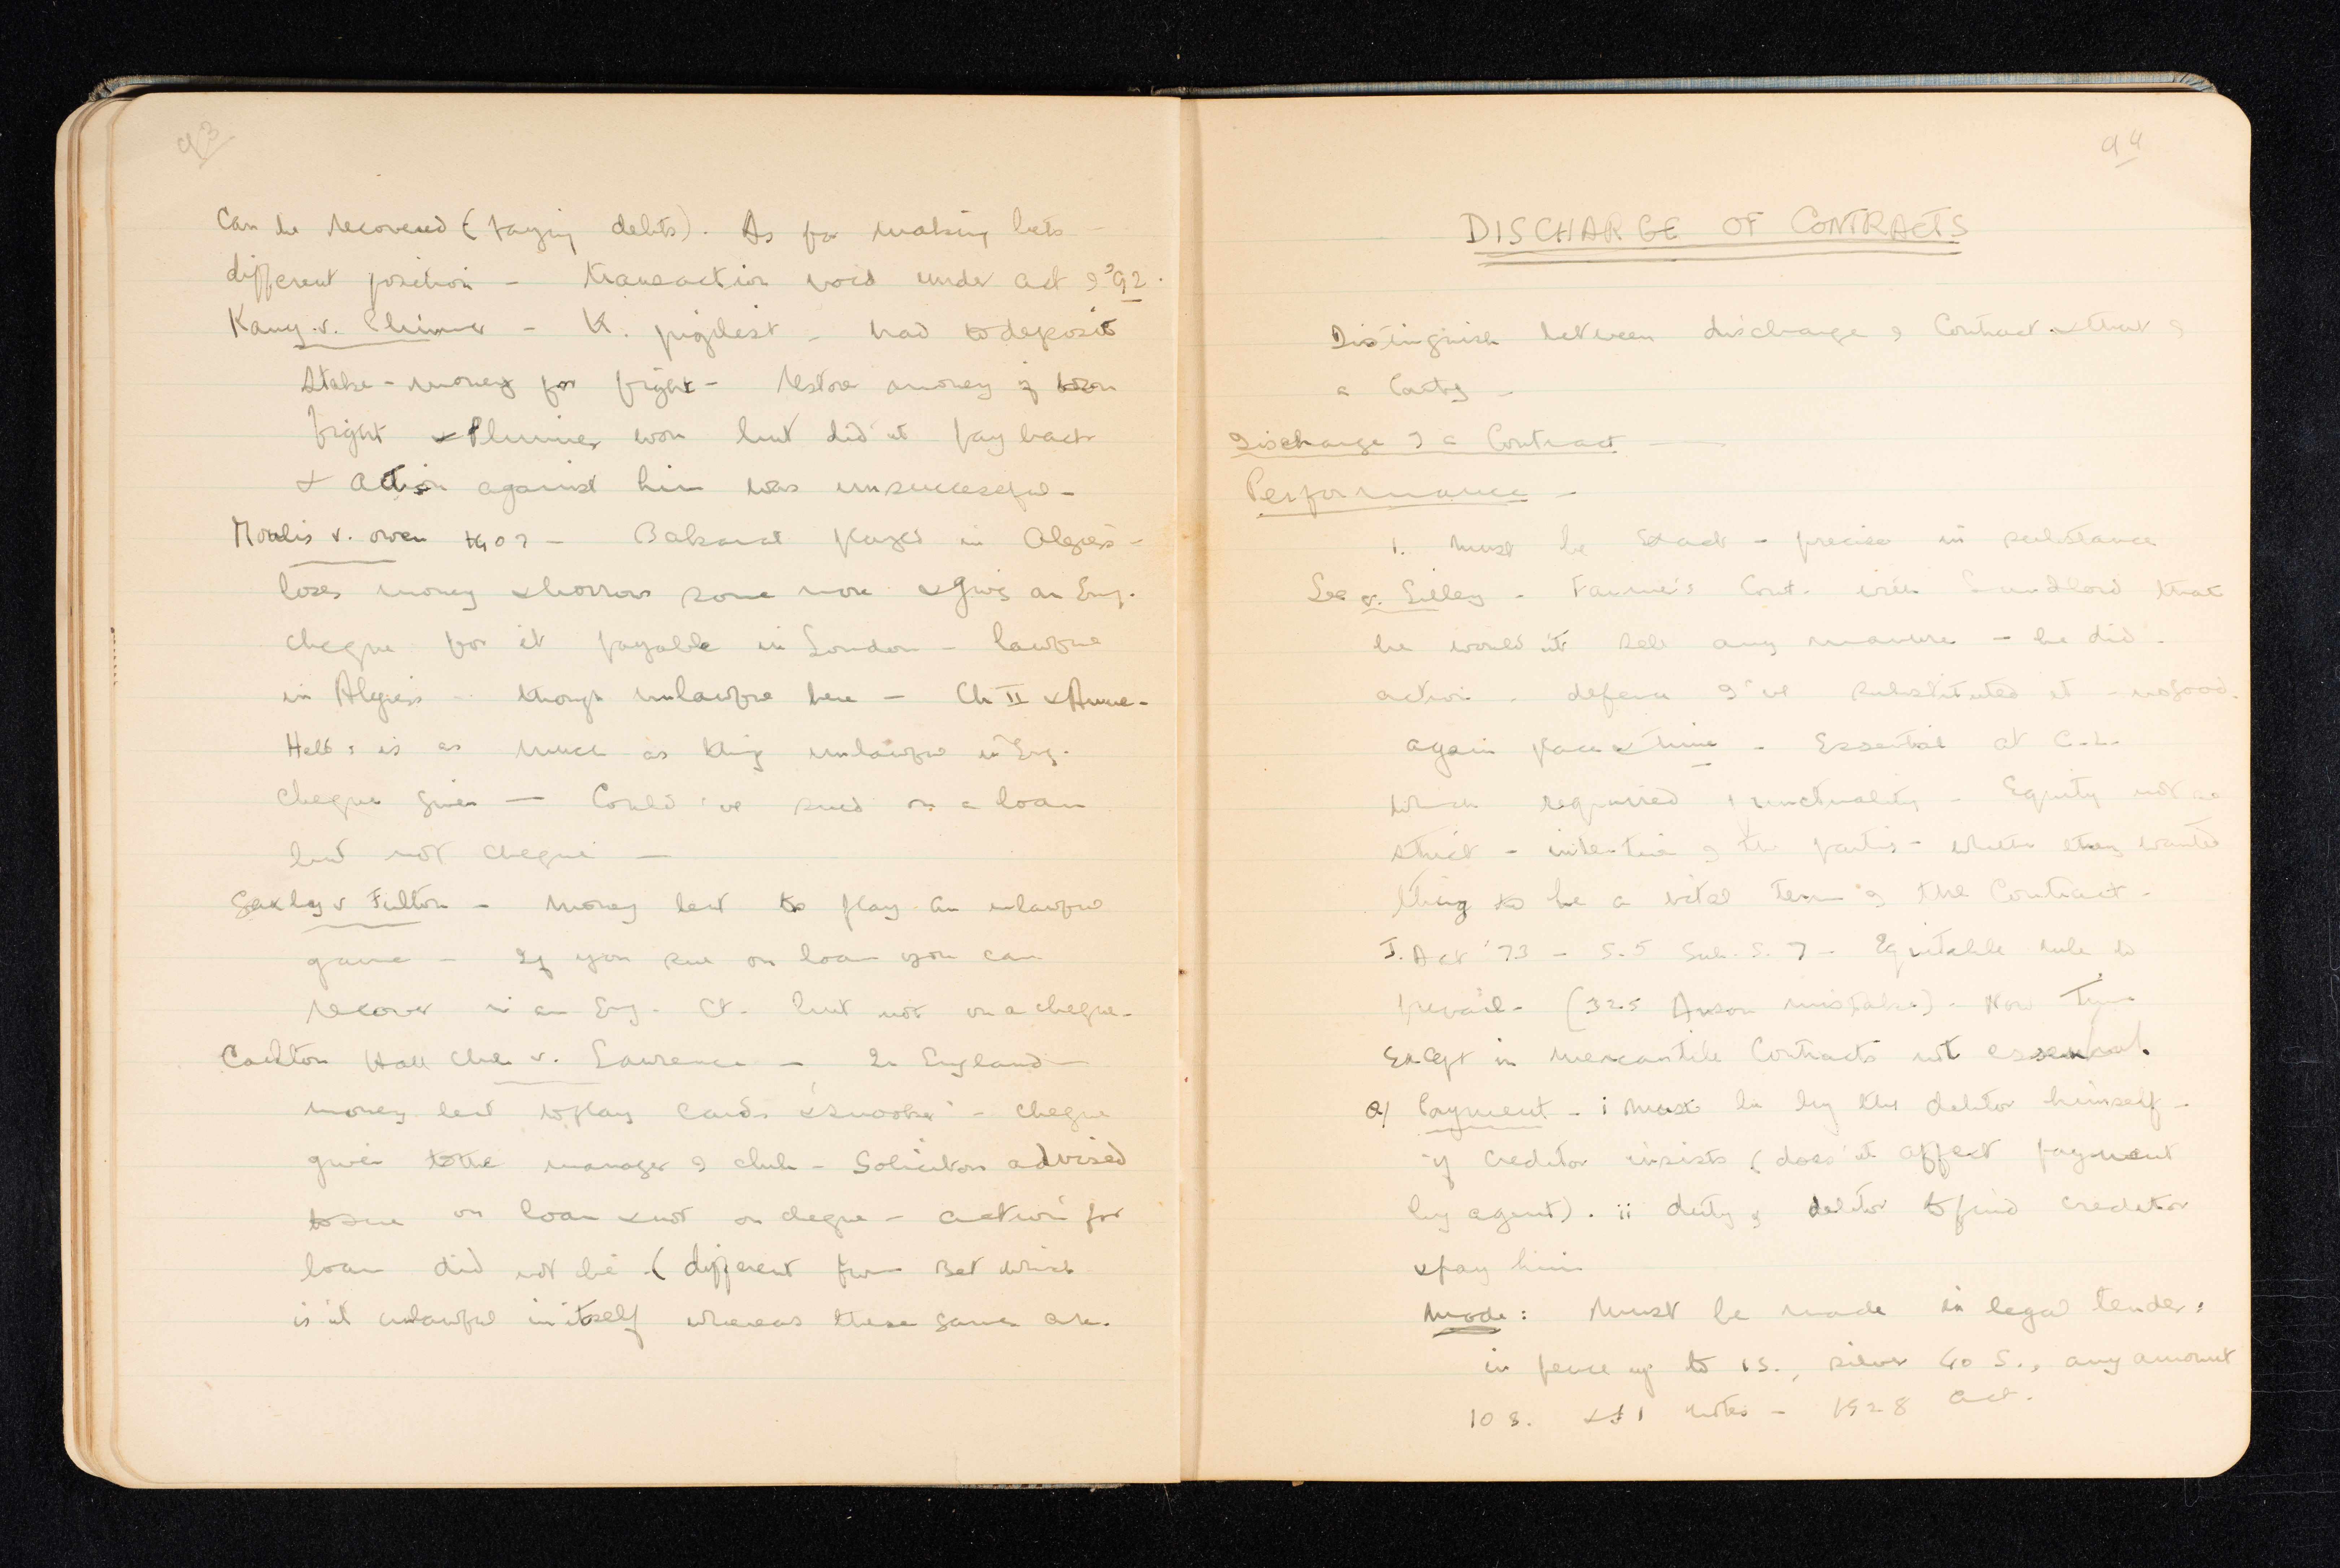 93
Can be recovered (paying debts). As for making bets -
different position - transaction void under act of '92.
v. - K. pugilist - had to deposit
stake-money for fight - restore money if
fight & Plummer won but didn't pay back
& action against him was unsuccessful -
Moulis v. Owen 1907 - Bakarat played in Algiers -
loses money & borrows some more & gives an Eng.
cheque for it payable in London - lawful
in Algiers - though unlawful here - Ch II & Anne -
Held: is as much as thing unlawful in Eng.
cheque given - Could 've sued on a loan
but not cheque -
Saxby v Fulton - Money lent to play an unlawful
game - If you sue on loan you can
recover in an Eng. Ct. but not on a cheque -
Carlton Hall Club v. Lawrence - In England -
money lent to play cards & 'snooker' - cheque
given to the manager of club - Solicitors advised
to sue on loan & not on cheque - action for
loan did not lie - (different from Bet which
is n't unlawful in itself whereas these games are.
94
DISCHARGE OF CONTRACTS
Distinguish between discharge of Contract & that of
a Party -
Discharge of a Contract -
Performance -
1. Must be exact - precise in substance
v. - Farmer's Cont. with Landlord that
he would n't sell any manure - he did -
action - defence I 've substituted it - no good.
again place & time - Essential at C.L.
which required punctuality - Equity not so
strict - intention of the parties - whether they wanted
thing to be a vital term of the Contract -
J. Act '73 - S.5 Sub. S. 7 - Equitable rule to
prevail - (325 Anson mistake) - Now Time
except in mercantile Contracts not essential.
a) Payment - i must be by the debtor himself -
if creditor insists (does n't affect payment
by agent). ii duty of debtor to find creditor
& pay him
Mode: Must be made in legal tender:
in pence up to 1s., silver 40 s., any amount
10 s. & £1 notes - 1928 Act.